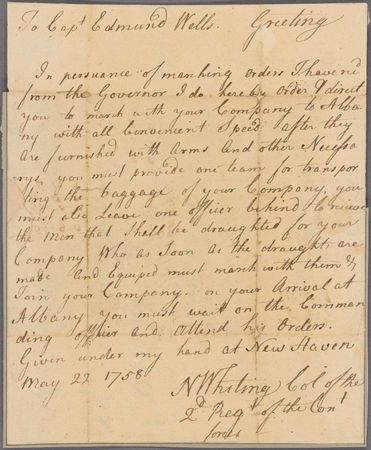 To Capt Edmund Wells. Greeting
In persuance of marching orders I have red
from the Governor I do hereby order & direct
you to march with your Company to Alba
ny with all Convenient Speed after they
are furnished with Arms and other Necessa
rys, you must provide one team for transpor
ting the baggage of your Company, you
must also Leave one officer behind to receive
the men that Shall be draughted for your
Company Who as Soon as the draughts are
made and Equiped must march with them &
Join your Company. on your Arrival at
Albany you must wait on the Comman
ding officer and Attend his Orders.
Given under my hand at New Haven
May 22 1758
N Whiting Col of the
2d Regt of the Cont
forces